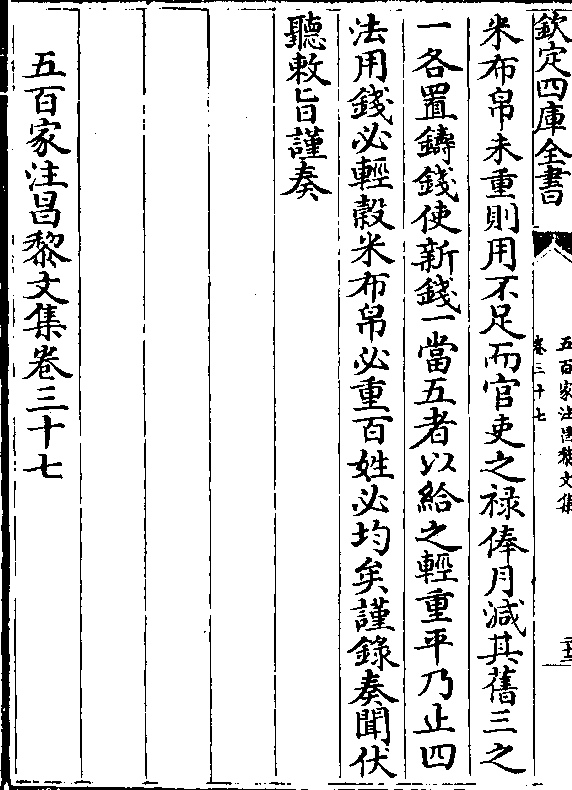 欽定四庫全書
五百家注昌黎文集
卷三十七
米布帛未重則用不足而官吏之禄俸月減其舊三之
一各置鑄錢使新錢一當五者以給之輕重平乃止四
法用錢必輕穀米布帛必重百姓必均矣謹錄奏聞伏
聽敕旨謹奏
五百家注昌黎文集卷三十七